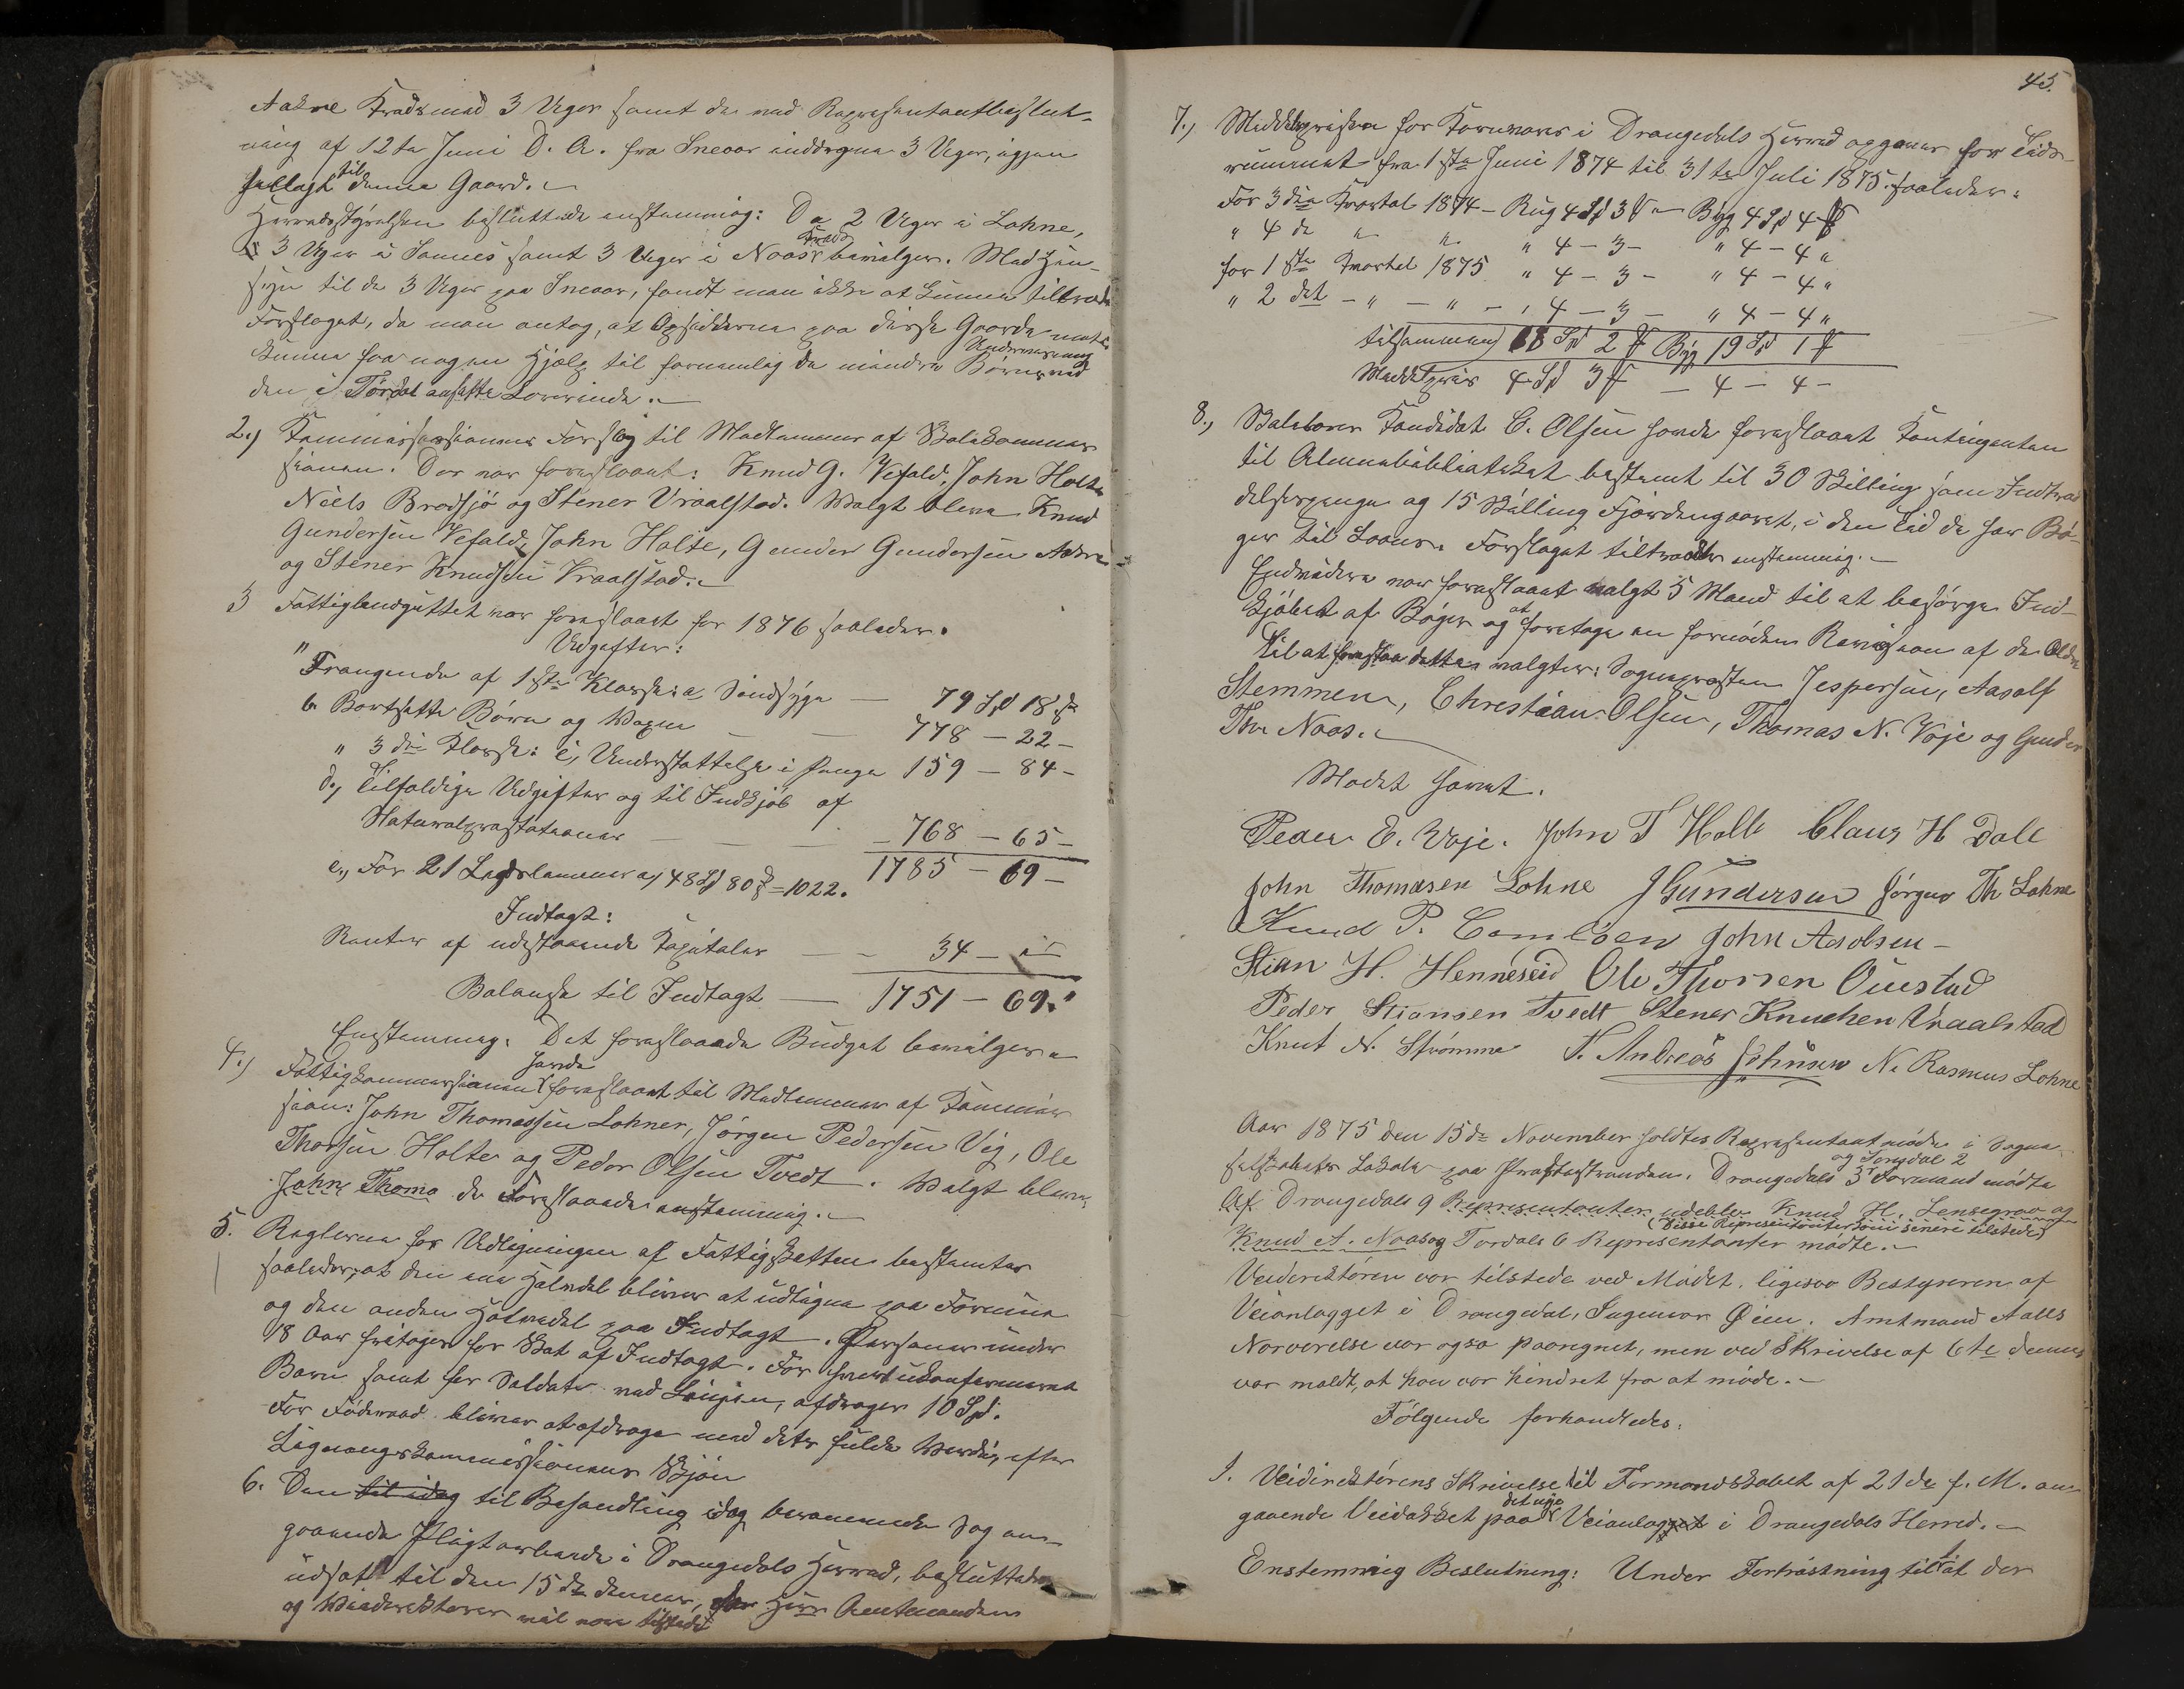 Aakre Kreds med 3 Uger samt de ved Repræsentantbeslut-
ning af 12te Juni D. A. fra Sneaas inddragne 3 Uger, igjen
tillagt til denne Gaard.
Herredsstyrelsen besluttede enstemmig: De 2 Uger i Lohne,
3 Uger i Sannes samt 3 Uger i Noas Kreds bevilges. Med Hen-
syn til de 3 Uger paa Sneaas, fandt man ikke at kunne tiltræde
Forslaget, da man antog, at Opsidderne paa disse Gaarde maatte
kunne faa nogen Hjælp til fornemlig de mindre Børns Undervisning ved
den i Tørdal ansatte Lærerinde.
2.) Kommissionens Forslag til Medlemmer af Skolekommis-
sionen. Der var foreslaaet: Knud G. Vefald, John Holte
Niels Brødsjø og Stener Vraalstad. Valgt bleve Knud
Gundersen Vefald, John Holte, Gunder Gundersen Aakre
og Stener Knudsen Vraalstad.
3 Fattigbudgettet var foreslaaet for 1876 saaledes.
Udgifter:
" Trængende af 1ste Klasse: a, Sindsyge — 79 Spd 18 ß
b. Bortsatte Børn og Voxne — — 778 — 22 —
" 3die Klasse: c, Understøttelse i Penge 159 — 84 —
d., Tilfældige Udgifter og til Indkjøb af
Naturalpræstationer — — — 768 — 65 —
1785 — 69 —
e., For 21 Lægdslemmer a, 48 Spd 80 ß = 1022.
Indtægt:
Renter af udestaaende Kapitaler — — 34 — "
Balanse til Indtægt — 1751 — 69. "
Enstemmig. Det foreslaaede Budget bevilges.
4.) Fattigkommissionen havde foreslaaet til Medlemmer af Kommis-
sion: John Thomassen Lohner, Jørgen Pedersen Vig, Ole
Thorsen Holte og Peder Olsen Tvedt. Valgt bleve
John Thoma de Foreslaaede enstemmig.
5. Reglerne for Udligningen af Fattigskatten bestemtes
saaledes, at den ene Halvdel bliver at udligne paa Formue
og den anden Halvdel paa Indtægt. Personer under
18 Aar fritages for Skat af Indtægt. For hvert ukonfirmeret
Barn samt for Soldater ved Linjen, afdrages 10 Spd.
For Føderaad bliver at afdrage med dets fulde Værdi, efter
Ligningskommissionens Skjøn
6. Den til idag til Behandling idag berammede Sag an-
gaaende Pligtarbeide i Drangedals Herred, besluttedes
udsat til den 15de dennes, da Herr Amtmanden
og Veidirektøren vil være tilstede
45.
7.) Middelprisen for Kornvarer i Drangedals Herred opgaves for Tids-
rummet fra 1ste Juni 1874 til 31te Juli 1875. saaledes:
For 3die Kvartal 1874 — Rug 4 Spd 3 ₰ — Byg 4 Spd 4 ₰
" 4de " " " 4 — 3 — " 4 — 4 "
for 1ste Kvartal 1875 " 4 — 3 — " 4 — 4 "
" 2det — " — " — " 4 — 3 — " 4 — 4 "
tilsammen 18 Spd 2 ₰ Byg 19 Spd 1 ₰
Middelpris 4 Spd 3 ₰ — 4 — 4 —
8., Skolelærer Kandidat C. Olsen havde foreslaaet Kontingenten
til Almuebibliotheket bestemt til 30 Skilling som Indtræ-
delsespenge og 15 Skilling Fjerdingaaret, i den Tid de har Bø-
ger til Laans. Forslaget tiltrædtes enstemmig.
Endvidere var foreslaaet valgt 5 Mænd til at besørge Ind-
kjøbet af Bøger og at foretage en fornøden Revision af de Ældre
Til at forestaa dette valgtes: Sognepresten Jespersen, Aasolf
Stemmen, Christian Olsen, Thomas N. Voje og Gunder
Thr. Noas.
Mødet hævet.
Peder E. Voje. John T Holte Claus H Dale
John Thomasen Lohne J Gundersen Jørgen Th Lohne
Knud P. Eamlöen John Aasolsen —
Stian H. Henneseid Ole Thorsen Ouestad
Peder Stiansen Tvedt Stener Knudsen Vraalstad
Knut N. Strømme T. Andreas Johnsen N. Rasmus Lohne
Aar 1875 den 15de November holdtes Repræsentantmøde i Sogne-
selskabets Lokale paa Prestestranden. Drangedals 3 og Tørdal 2 Formænd mødte
Af Drangedals 9 Repræsentanter udeblev Knud H. Lensegrav og
Knud A. Noas og Tørdals 6 Representanter mødte. (Disse Representanter som senere tilstede)
Veidirektøren var tilstede ved Mødet. ligesaa Bestyreren af
Veianlægget i Drangedal, Ingeniør Øien. Amtmand Aalls
Nærværelse var ogsa paaregnet, men ved Skrivelse af 6te dennes
var meldt, at han var hindret fra at møde. —
Følgende forhandledes:
1. Veidirektørens Skrivelse til Formandskabet af 21de f. M. an-
gaaende Veidækket paa det nye Veianlæg i Drangedals Herred. —
Enstemmig Beslutning: Under Fortrøstning til at der